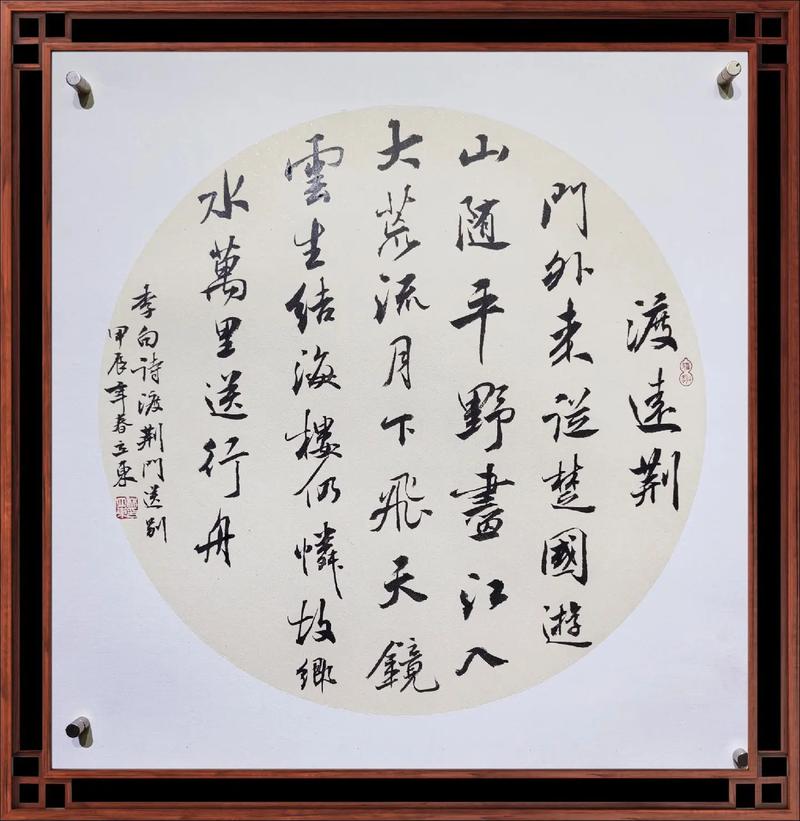 渡遠荆
門外来從楚國遊
山随平野盡江入
大荒流月下飛天鏡
雲生结海樓仍憐故鄉
水萬里送行舟
李白詩渡荆門送别
甲辰年春立東